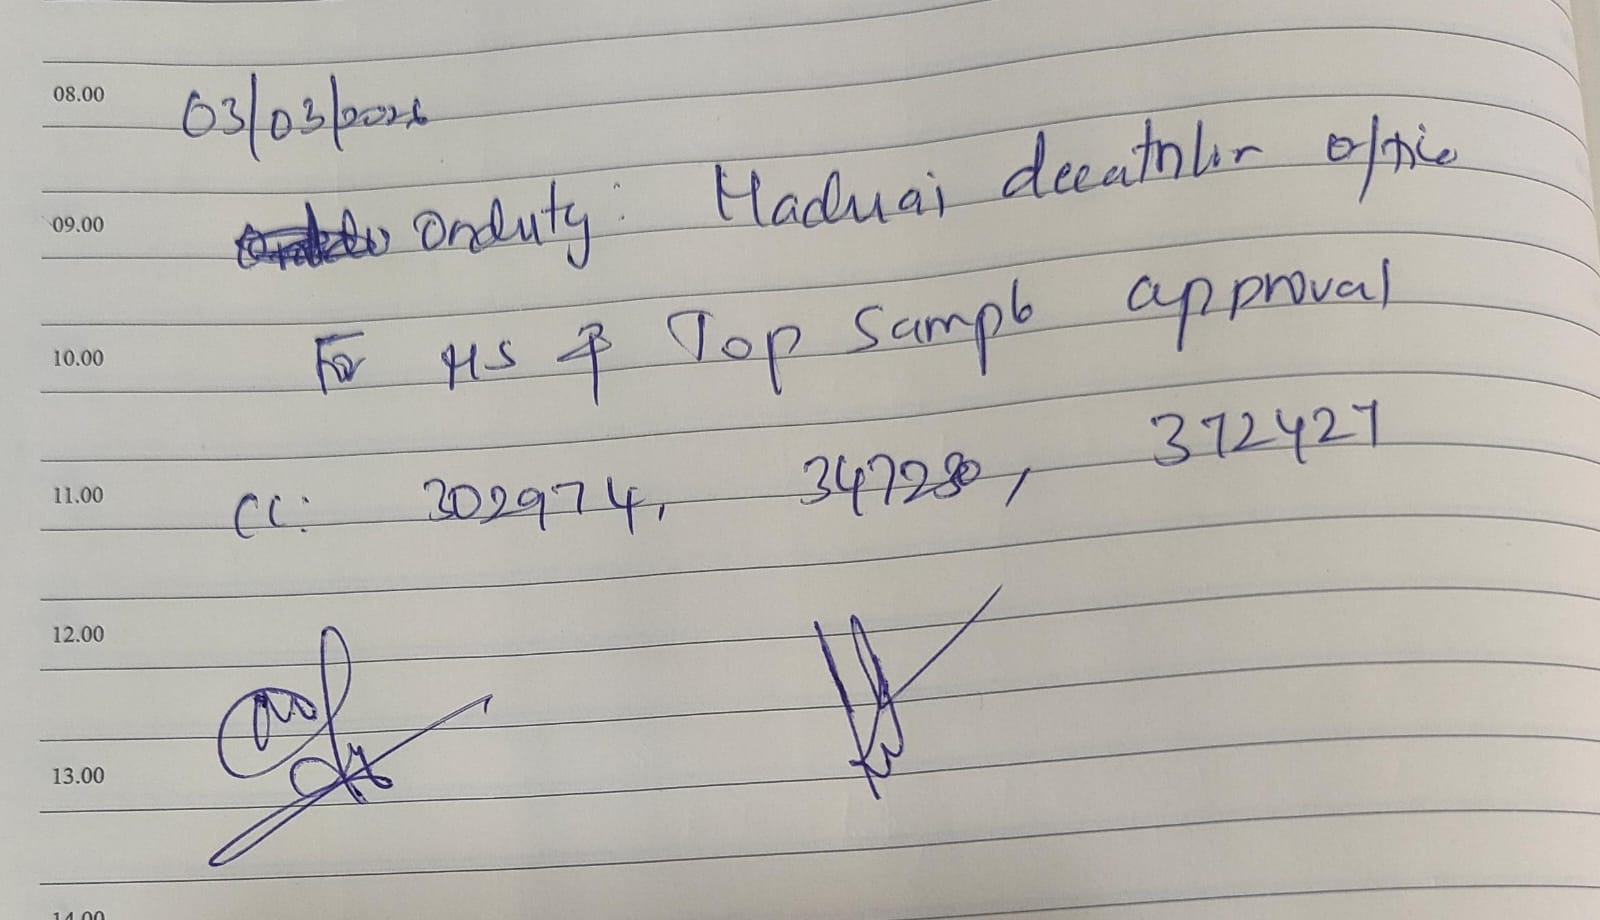 08.00 03/03/2026
09.00 Onduty: Maduai decathlon office
10.00 For MS & Top Sample approval
11.00 CC: 302974, 347280, 372427
12.00
13.00
14.00